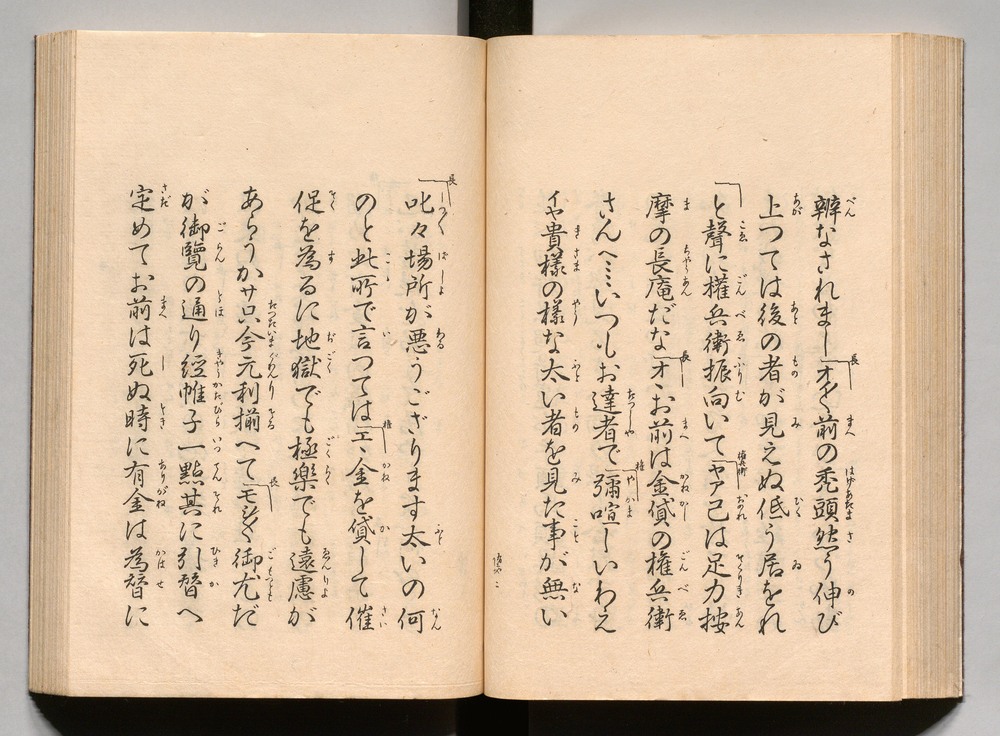 辨なされまし長オイ〳〵前の禿頭然う伸び
上つては後の者が見えぬ低う居をれ
と聲に權兵衞振向いて權兵衞ヤア己は足力按
摩の長庵だな長オヽお前は金貸の權兵衞
さんヘヽヽいつもお達者で權彌喧しいわえ
イヤ貴樣の樣な太い者を見た事が無い
長叱々場所が悪うござります太いの何
のと此所で言つては權エヽ金を貸して催
促を為るに地獄でも極樂でも遠慮が
あらうかサ只今元利揃へて長モシ〳〵御尤だ
が御覽の通り經帷子一點其に引替へ
定めてお前は死ぬ時に有金は為替に